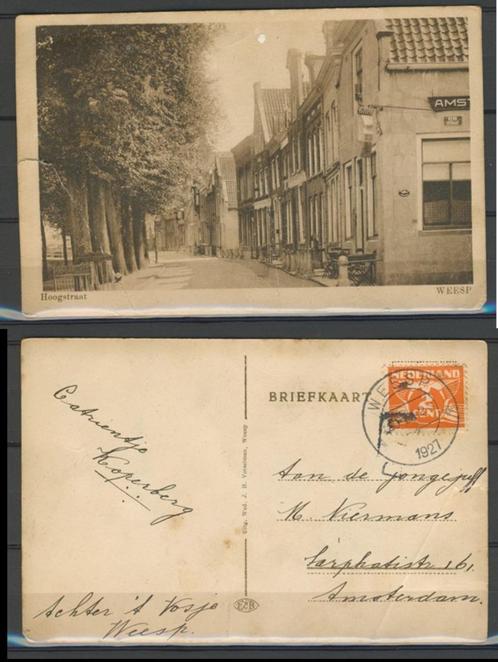 AMST
Hoogstraat
WEESP
BRIEFKAART
NEDERLAND
2
CENT
WEESP
1927
Catrientje
Koperberg
Uitg. Wed. J. H. Vetteman, Weesp
Aan de Jongejuff
M. Niermans
Sarphatistr 161.
Amsterdam.
Achter 't Vosje
Weesp.